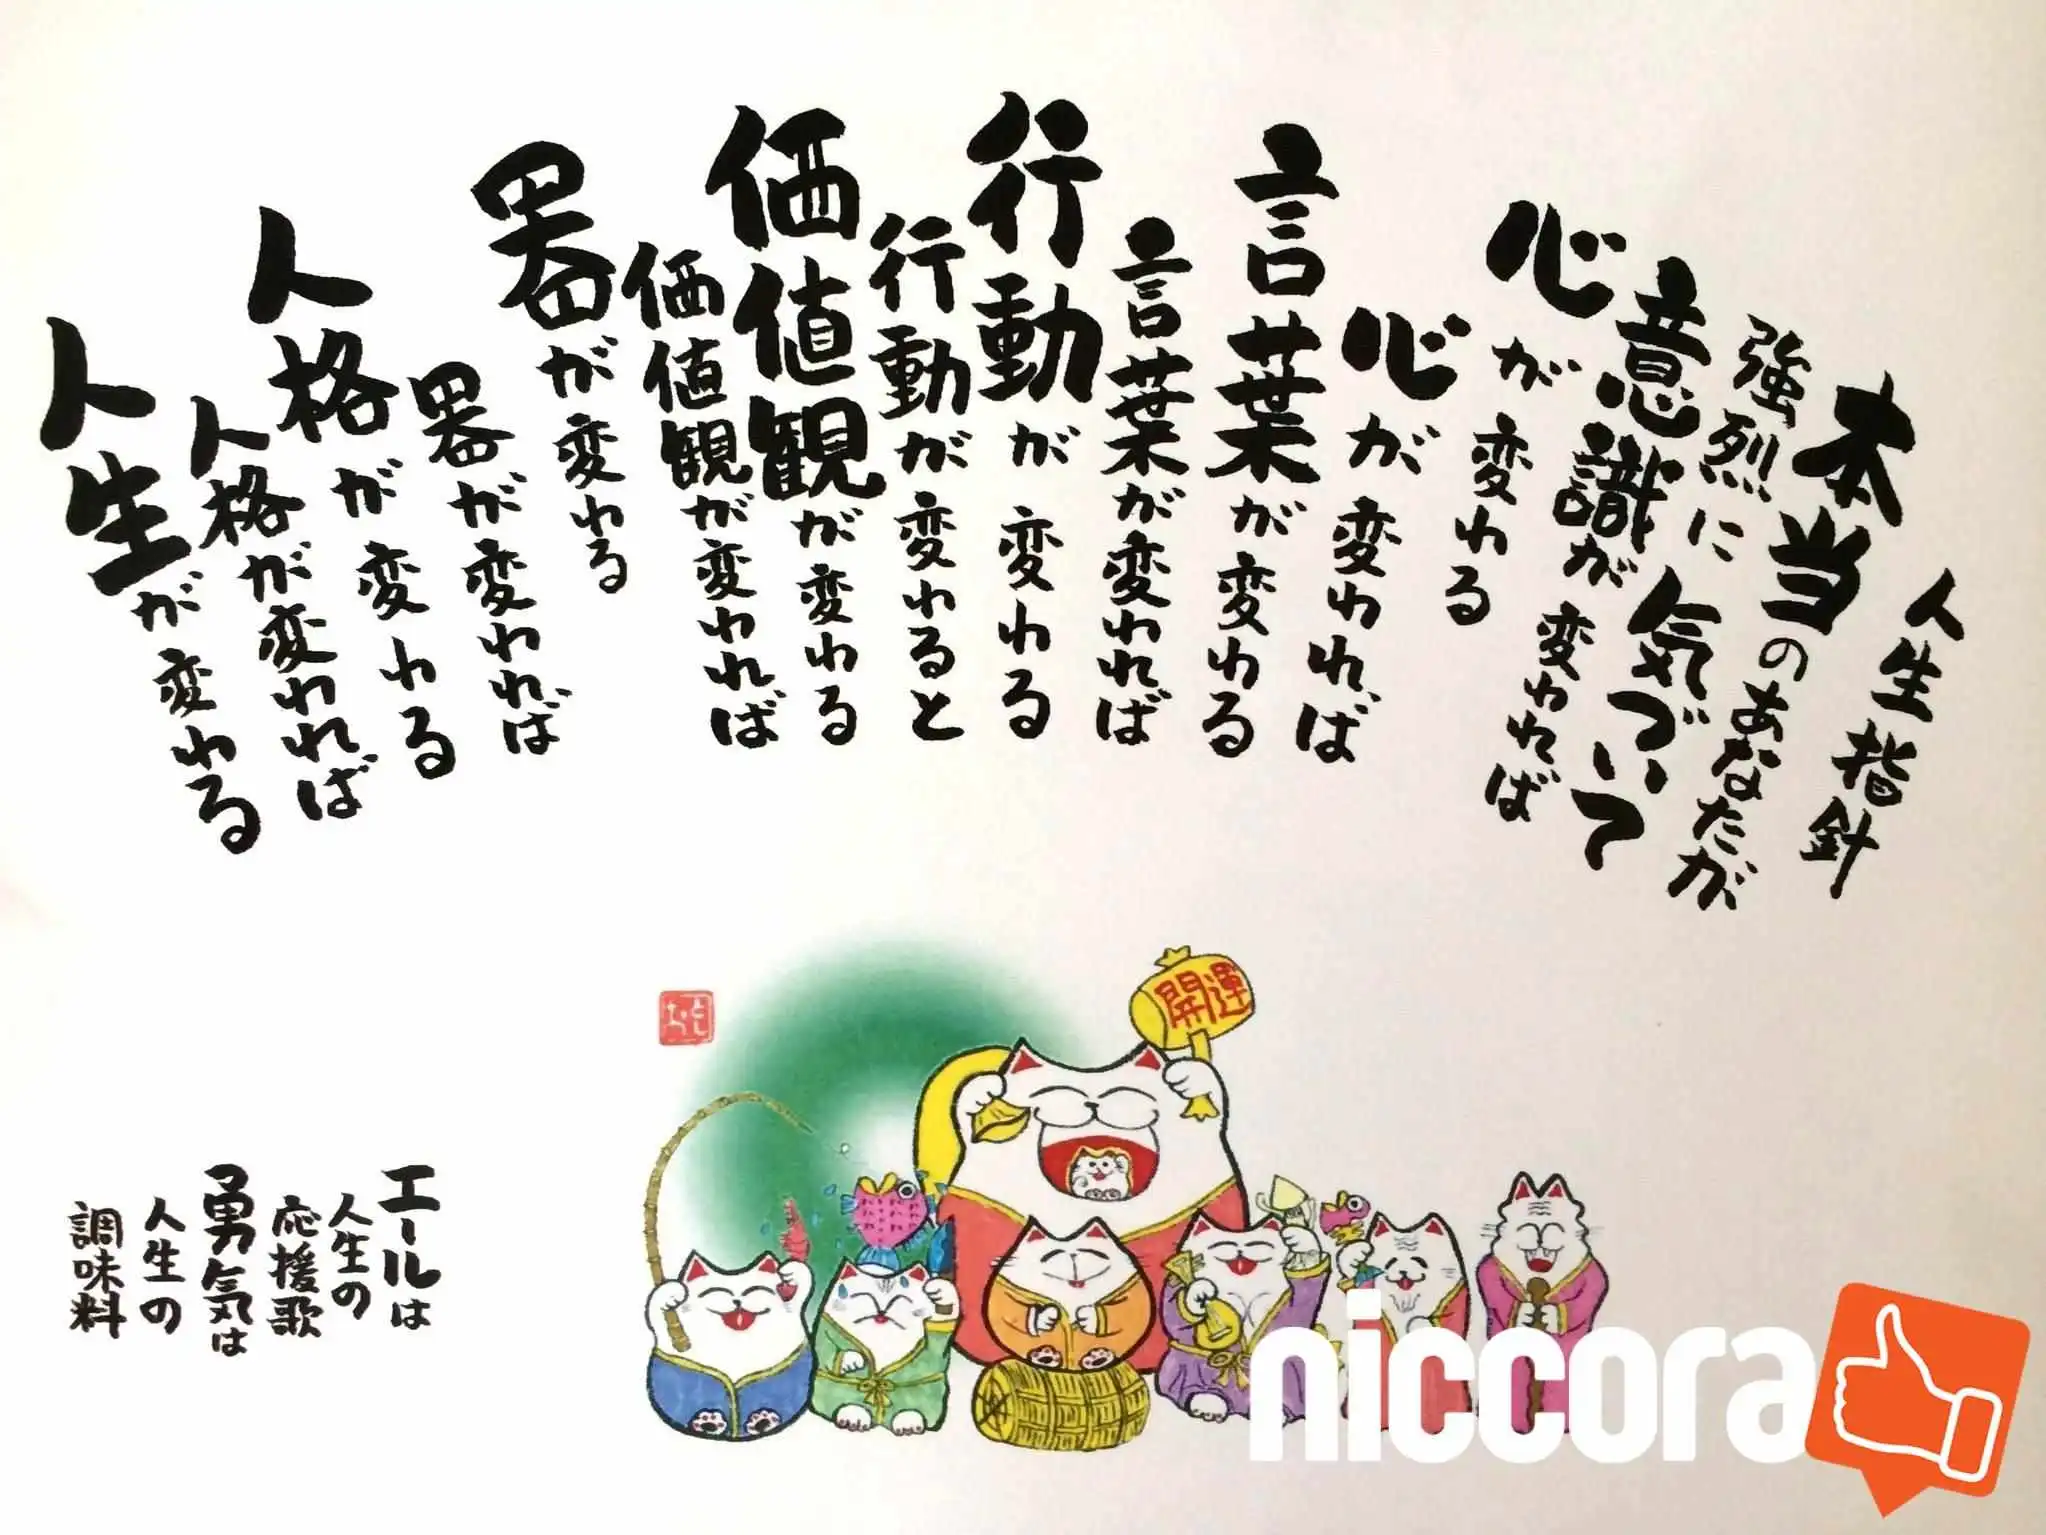 人生指針
本当のあなたが
強烈に気づいて
意識が変われば
心が変わる
心が変われば
言葉が変わる
言葉が変われば
行動が変わる
行動が変わると
価値観が変わる
価値観が変われば
器が変わる
器が変われば
人格が変わる
人格が変われば
人生が変わる
エールは
人生の
応援歌
勇気は
人生の
調味料
開運
niccora